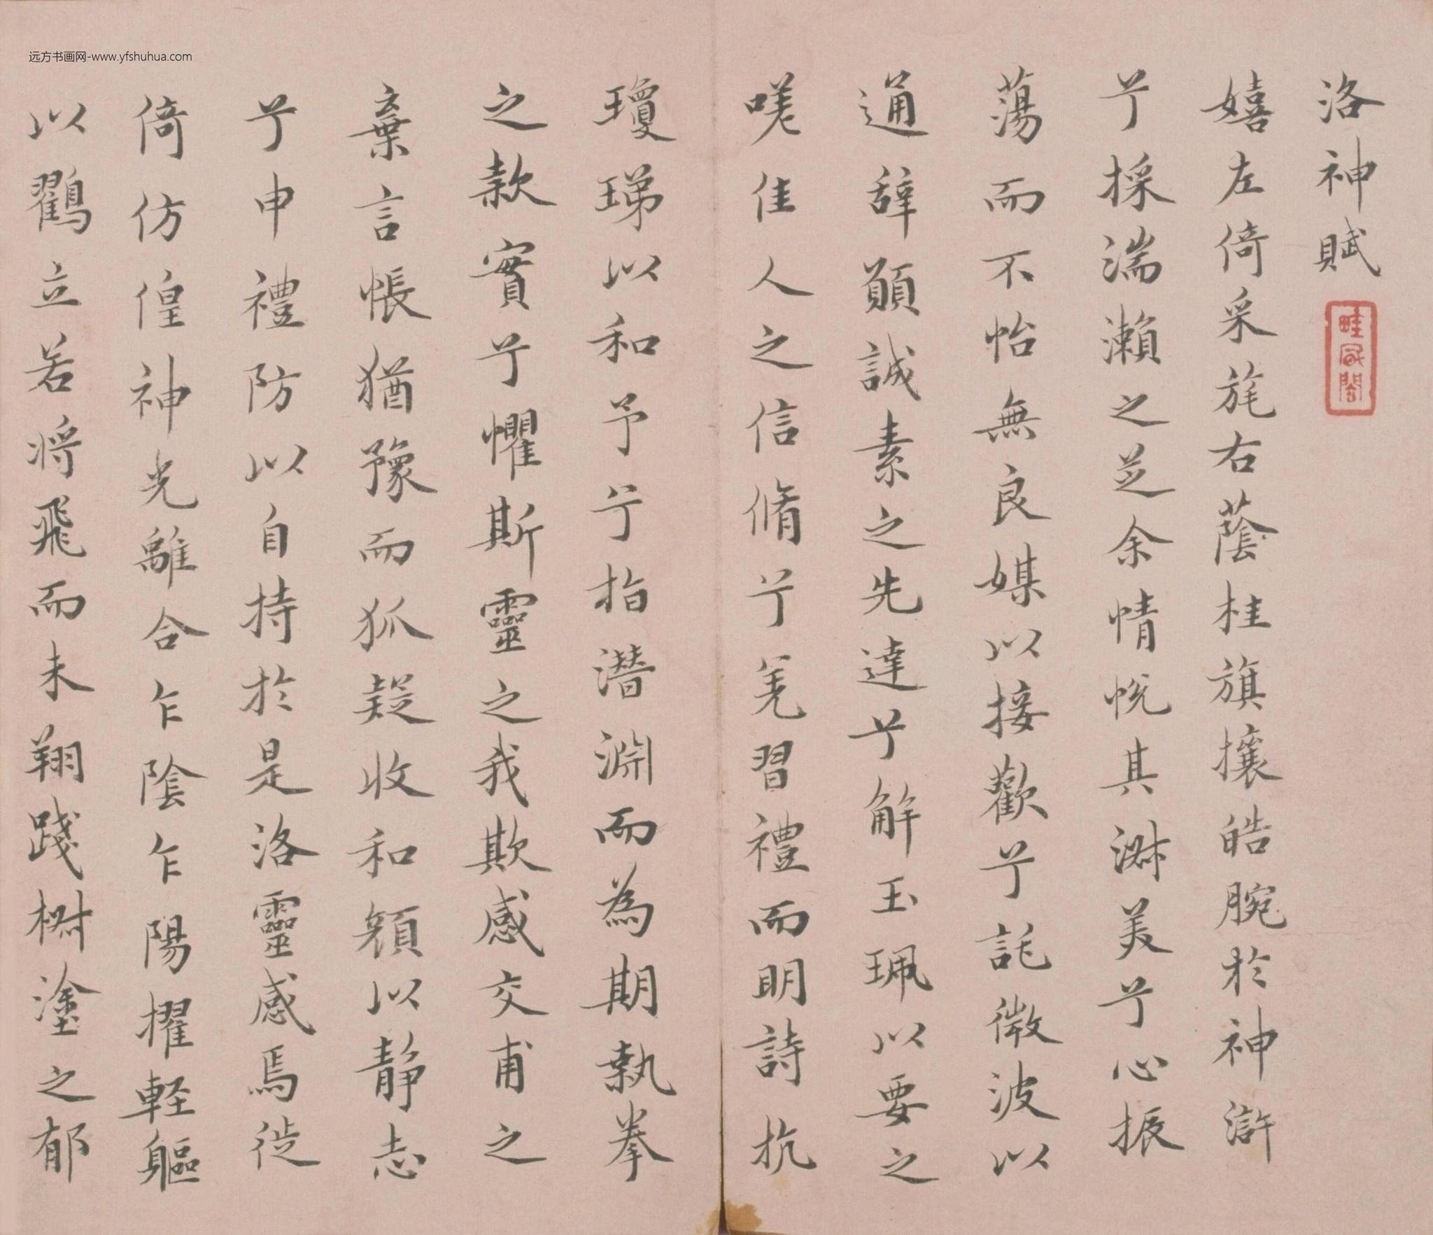 远方书画网-www.yfshuhua.com
洛神賦
嬉左倚采旄右蔭桂旗攘皓腕於神滸
兮採湍瀨之芝余情悅其淋美兮心振
蕩而不怡無良媒以接歡兮託微波以
通辭願誠素之先達兮解玉珮以要之
嗟佳人之信脩兮羌習禮而明詩抗
瓊珶以和予兮指潛淵而為期執拳
之款實兮懼斯靈之我欺感交甫之
棄言悵猶豫而狐疑收和顏以靜志
兮申禮防以自持於是洛靈感焉徙
倚仿偟神光離合乍陰乍陽擢軽軀
以鸛立若将飛而未翔踐椒塗之郁